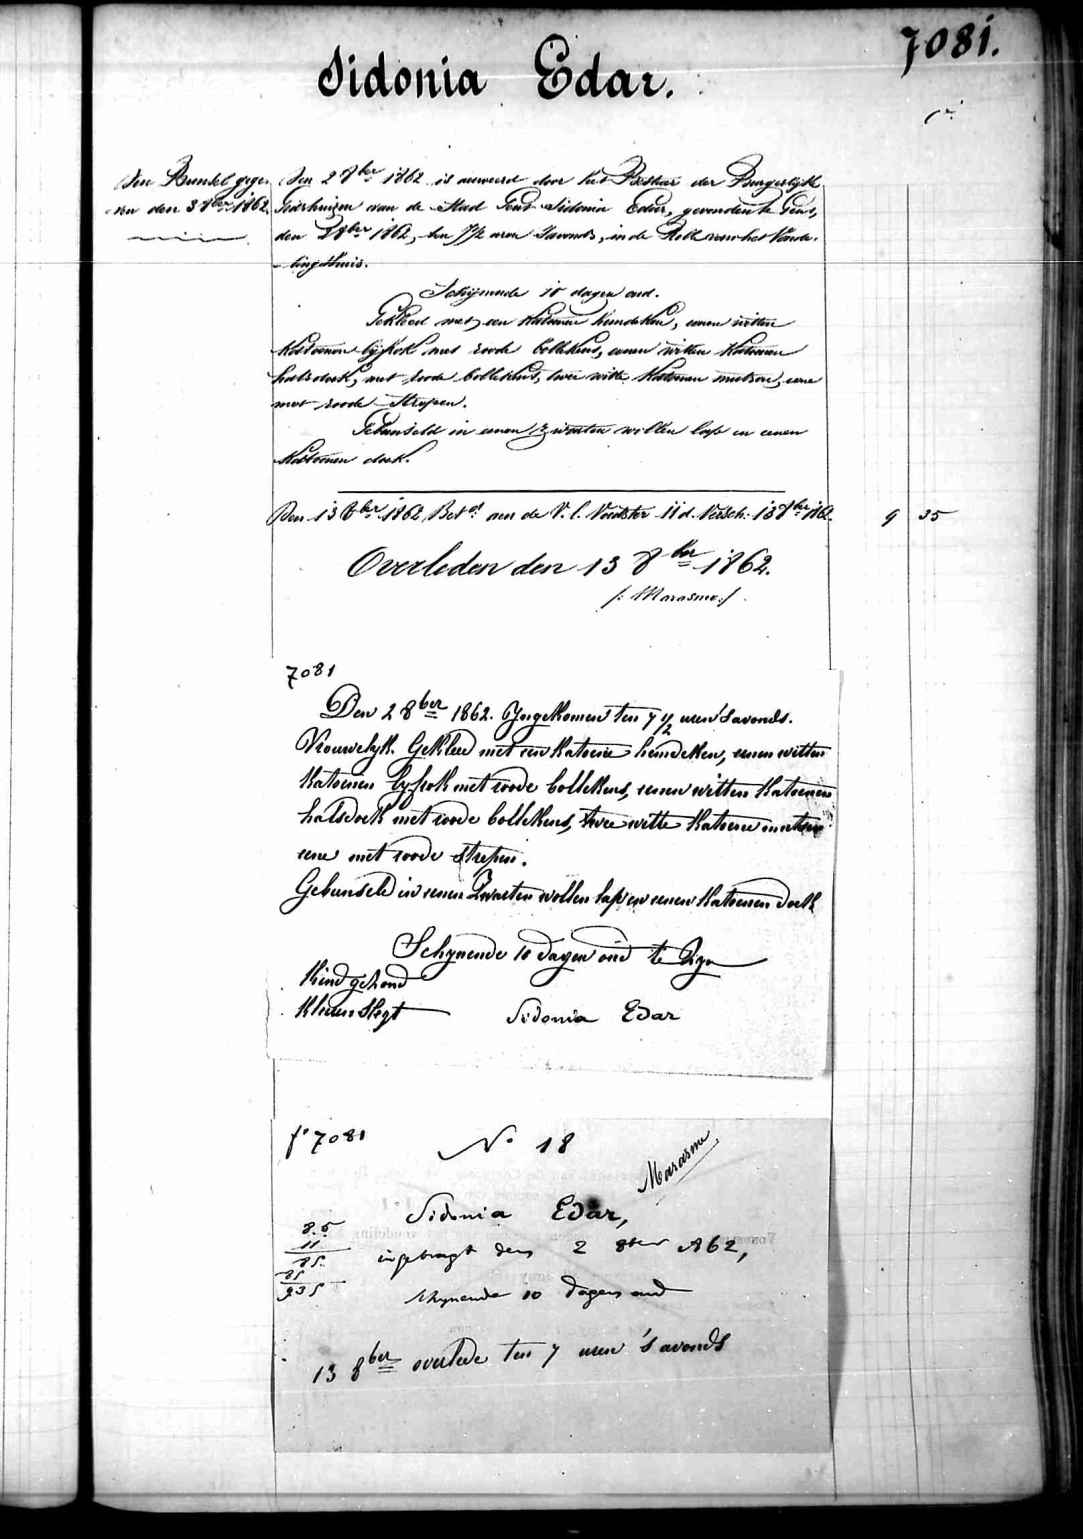 7081.
Sidonia Edar.
Den Bunsel gege-
ven den 3 8ber 1862.
Den 2 8ber 1862 is aenveerd door het Bestuur der Burgerlyke
Godshuizen van de Stad Gent Sidonia Edar, gevonden te Gent,
den 2 8ber 1862, ten 7 1/2 uren 's avonds, in de Rolle van het Vonde-
lingshuis.
Schijnende 10 dagen oud.
Gekleed met een katoenen hemdeken, eenen witten
katoenen lijfrok met roode bollekens, eenen witten katoenen
halsdoek, met roode bollekens, twee witte katoenen mutsen, eene
met roode strepen.
Gebunseld in eenen zwarten wollen lap en eenen
katoenen doek.
Den 13 8ber 1862 Bet. aen de V. l. Voedster 11 d. Versch. 13 8ber 1862. 9 35
Overleden den 13 8ber 1862.
/: Marasme :/
7081
Den 2 8ber 1862. Ingekomen ten 7 1/2 uren 's avonds.
Vrouwelyk. Gekleed met een katoene hemdeken, eenen witten
katoenen lyfrok met roode bollekens, eenen witten katoenen
halsdoek met roode bollekens, twee witte katoene mutsen
eene met roode strepen.
Gebunseld in eenen Zwarten wollen lap en eenen katoenen doek
Schynende 10 dagen oud te Zyn
Kind gezond
Kleen Slegt Sidonia Edar
fo 7081 No 18
Marasme
Sidonia Edar,
85
11
85
85
935
ingebragt den 2 8ber 1862,
schynende 10 dagen oud
13 8ber overlede ten 7 uren 's avonds